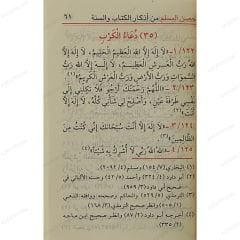 حصن المسلم من أذكار الكتاب والسنة ٦٨
(٣٥) دُعَاءُ الْكَرْبِ
١٢٢/١- «لَا إِلَهَ إِلَّا اللهُ الْعَظِيمُ الْحَلِيمُ، لَا إِلَهَ إِلَّا
اللهُ رَبُّ الْعَرْشِ الْعَظِيمِ، لَا إِلَهَ إِلَّا اللهُ رَبُّ
السَّمَوَاتِ وَرَبُّ الْأَرْضِ وَرَبُّ الْعَرْشِ الْكَرِيمِ»(١).
١٢٣/٢- «اللَّهُمَّ رَحْمَتَكَ أَرْجُو فَلَا تَكِلْنِي إِلَى
نَفْسِي طَرْفَةَ عَيْنٍ، وَأَصْلِحْ لِي شَأْنِي كُلَّهُ لَا إِلَهَ إِلَّا أَنْتَ»(٢).
١٢٤/٣- «لَا إِلَهَ إِلَّا أَنْتَ سُبْحَانَكَ إِنِّي كُنْتُ مِنَ
الظَّالِمِينَ»(٣).
١٢٥/٤- «اللهُ اللهُ رَبِّي لَا أُشْرِكُ بِهِ شَيْئاً»(٤).
(١) البخاري (٧/ ١٥٤) ومسلم (٤/ ٢٠٩٢).
(٢) أبو داود (٤/ ٣٢٤) وأحمد (٥/ ٤٢) وحسنه الألباني في
صحيح أبي داود (٣/ ٩٥٩).
(٣) الترمذي (٥/ ٥٢٩) والحاكم وصححه ووافقه الذهبي
(١/ ٥٠٥) وانظر صحيح الترمذي (٣/ ١٦٨).
(٤) أخرجه أبو داود (٢/ ٨٧) وانظر صحيح ابن ماجه
(٢/ ٣٣٥).